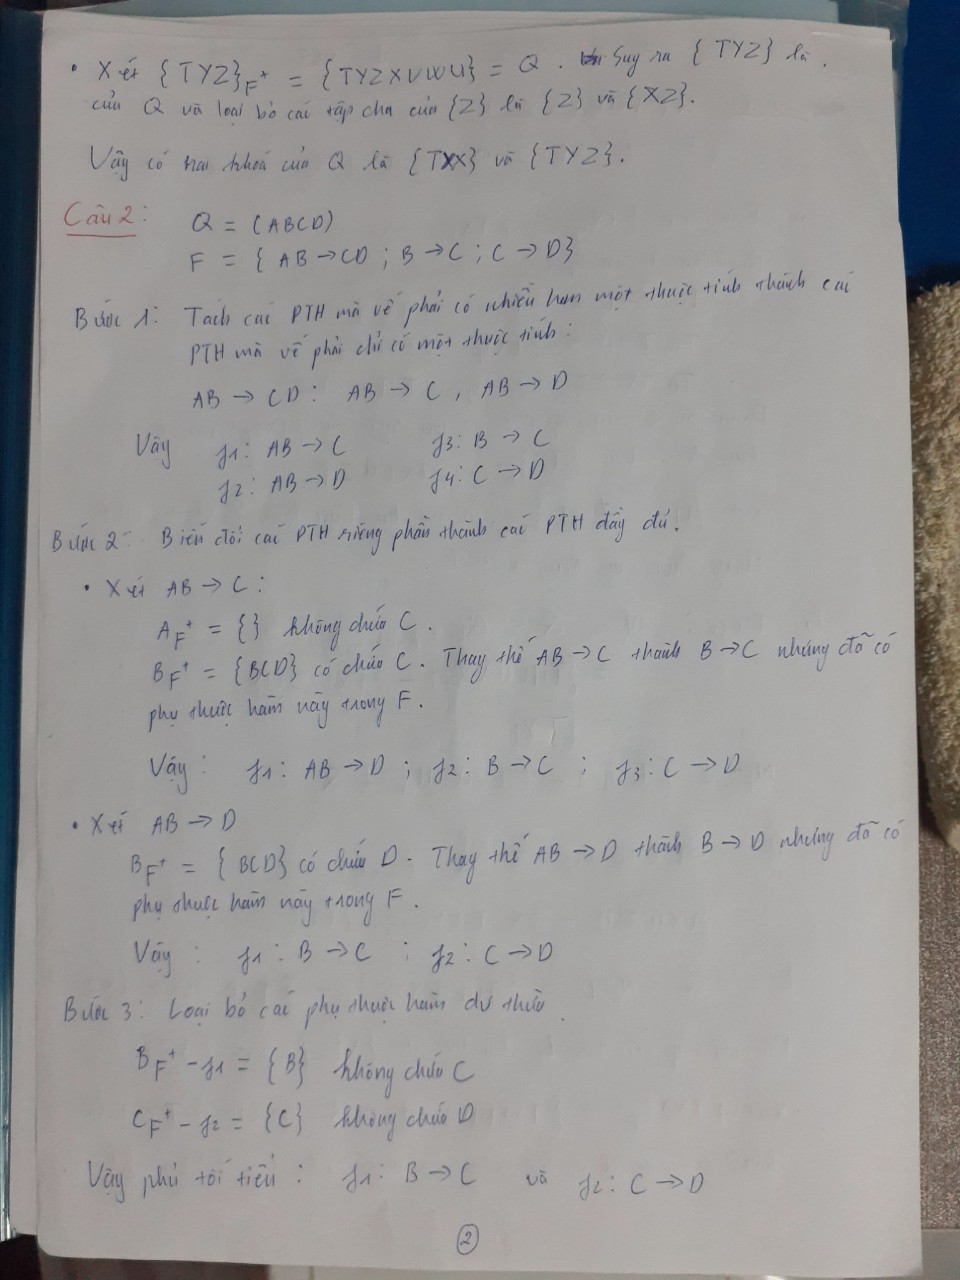 • Xét {TYZ}F⁺ = {TYZXVWU} = Q . Suy ra {TYZ} là .
của Q và loại bỏ các tập cha của {Z} là {Z} và {XZ}.
Vậy có hai khoá của Q là {TXX} và {TYZ}.
Câu 2: Q = (ABCD)
F = { AB → CD ; B → C ; C → D}
Bước 1: Tách các PTH mà vế phải có nhiều hơn một thuộc tính thành các
PTH mà vế phải chỉ có một thuộc tính:
AB → CD : AB → C , AB → D
Vậy f1: AB → C f3: B → C
f2: AB → D f4: C → D
Bước 2: Biến đổi các PTH riêng phần thành các PTH đầy đủ.
• Xét AB → C :
AF⁺ = {} không chứa C .
BF⁺ = {BCD} có chứa C . Thay thế AB → C thành B → C nhưng đã có
phụ thuộc hàm này trong F .
Vậy : f1 : AB → D ; f2 : B → C ; f3 : C → D
• Xét AB → D
BF⁺ = {BCD} có chứa D . Thay thế AB → D thành B → D nhưng đã có
phụ thuộc hàm này trong F .
Vậy : f1 : B → C ; f2 : C → D
Bước 3: Loại bỏ các phụ thuộc hàm dư thừa .
BF⁺ - f1 = {B} không chứa C
CF⁺ - f2 = {C} không chứa D
Vậy phủ tối tiểu : f1 : B → C và f2 : C → D
2